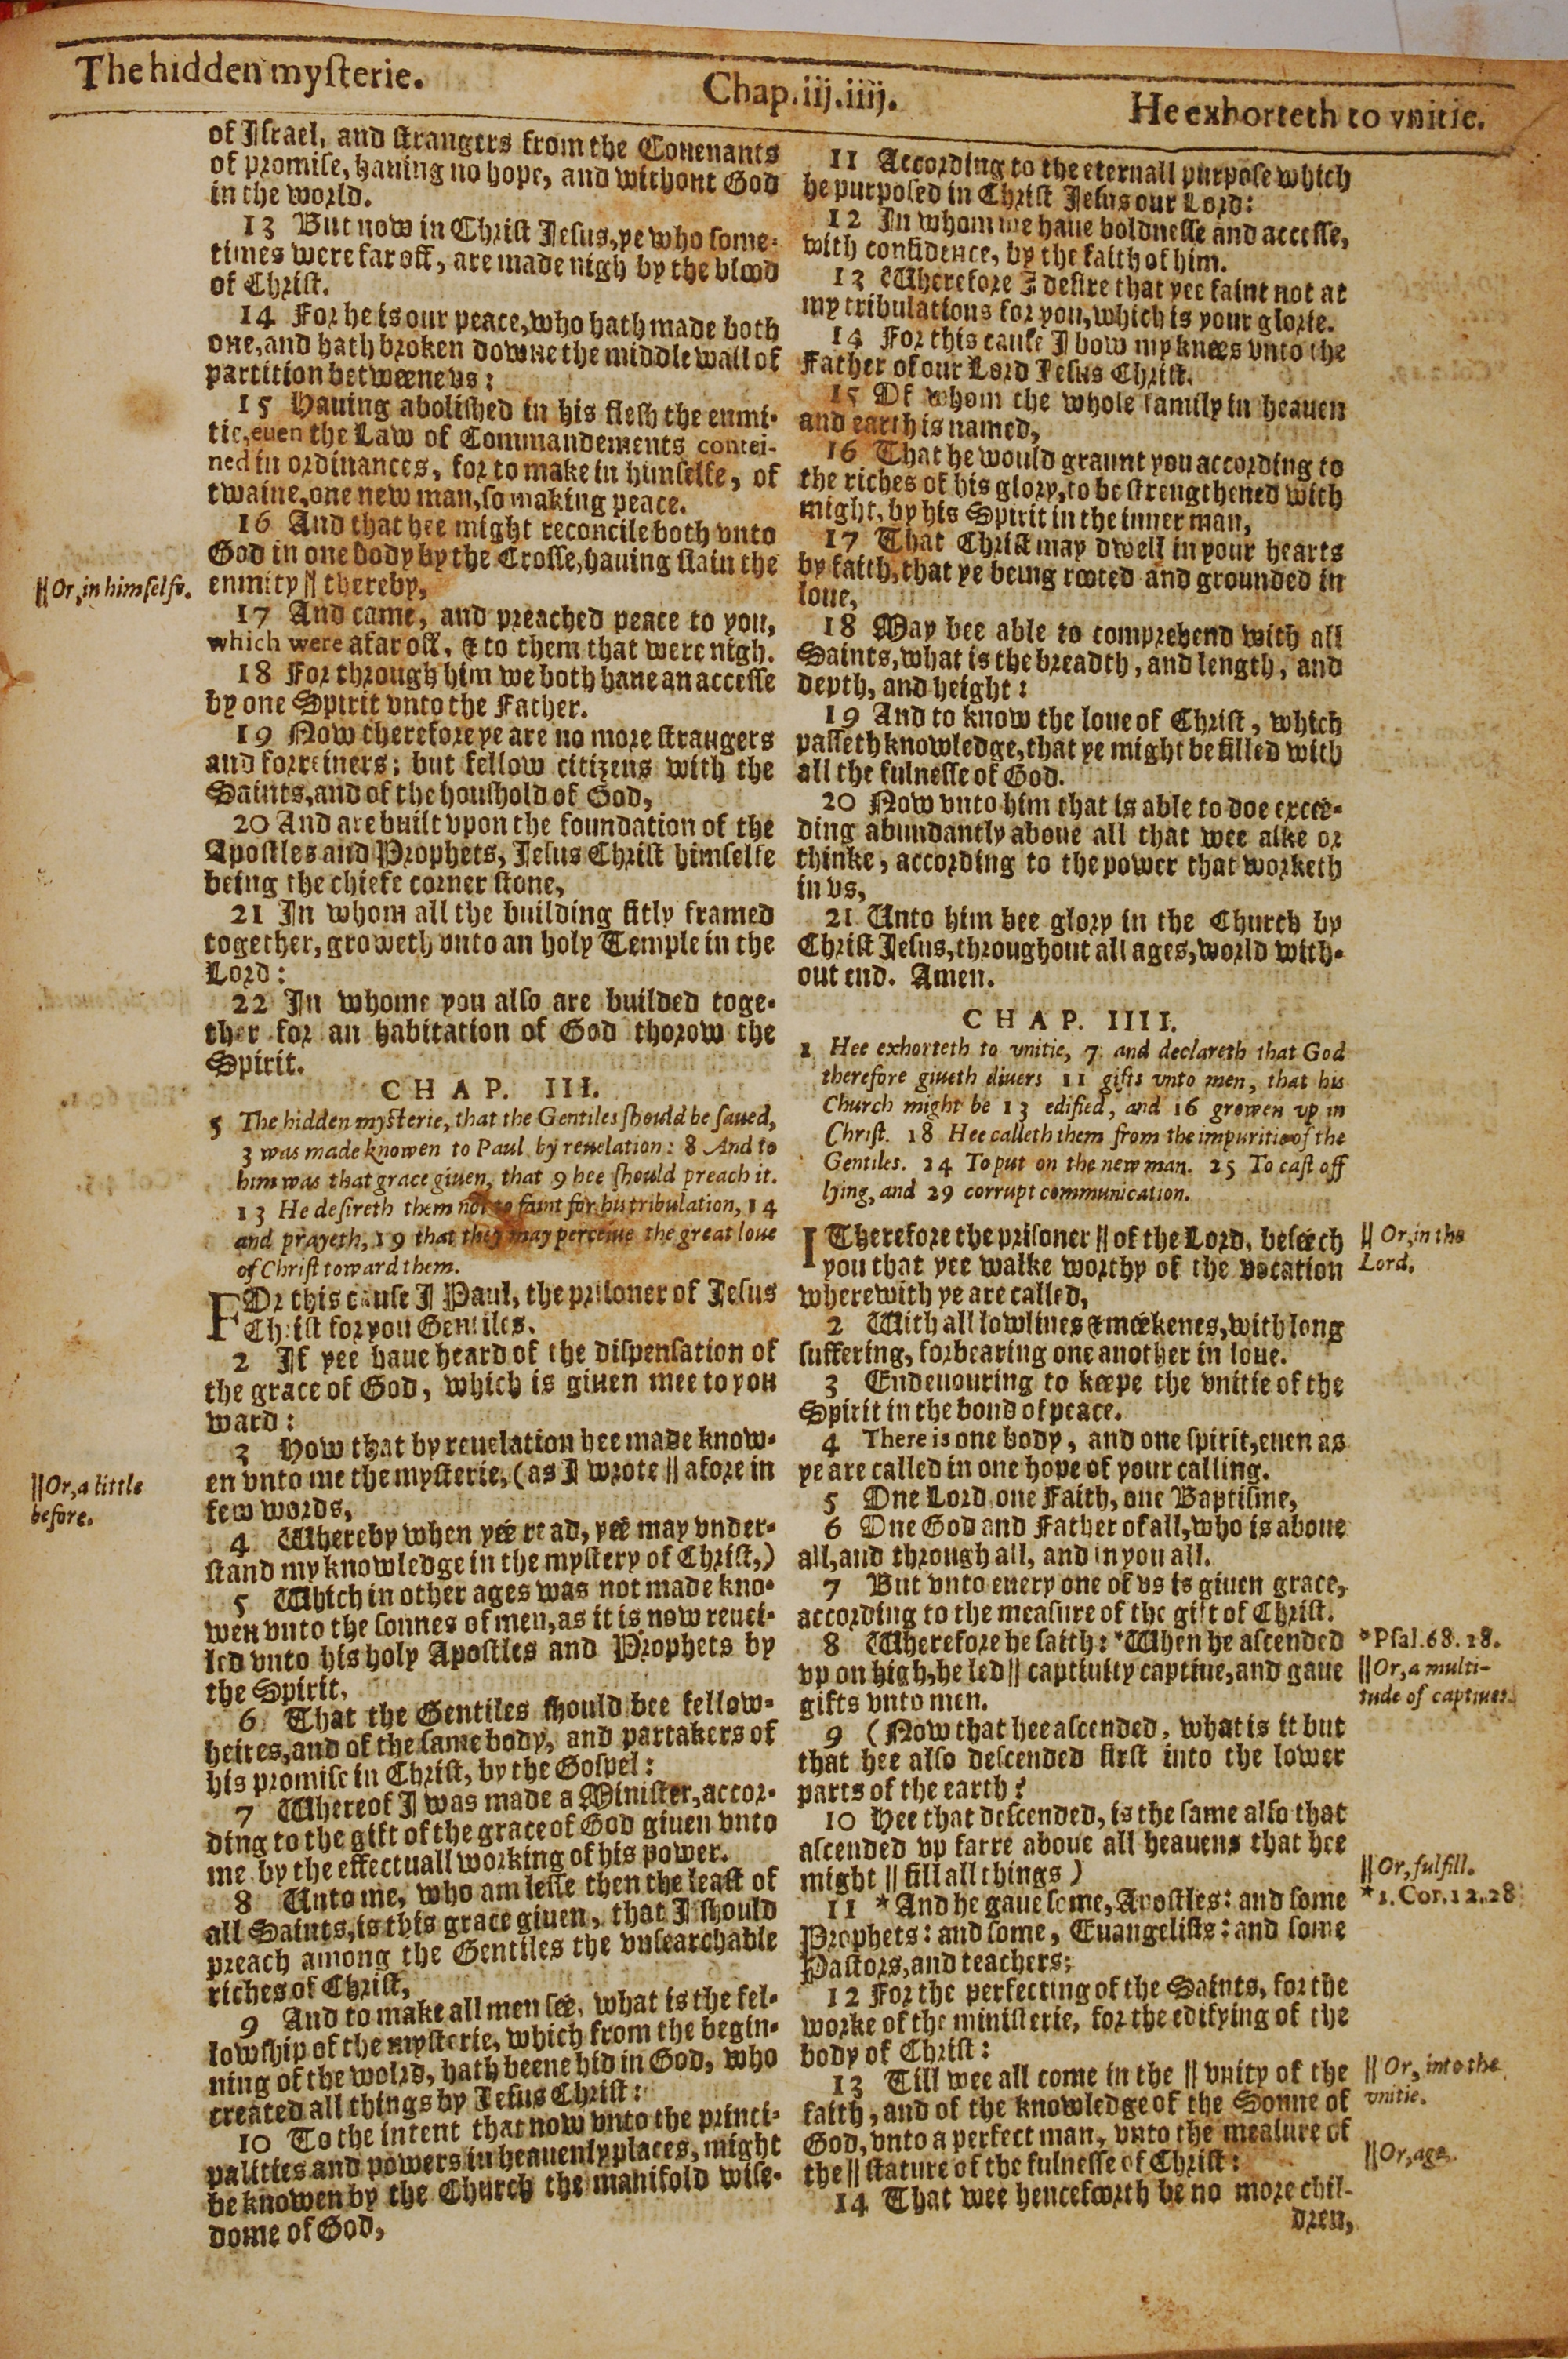 The hidden myſterie.
Chap.iij.iiij.
He exhorteth to vnitie.
of Iſrael, and ſtrangers from the Couenants
of promiſe, hauing no hope, and without God
in the world.
13 But now in Chriſt Ieſus, ye who ſome-
times were far off, are made nigh by the blood
of Chriſt.
14 For he is our peace, who hath made both
one, and hath broken downe the middle wall of
partition betweene vs:
15 Hauing aboliſhed in his fleſh the enmi-
tie, euen the Law of Commandements contei-
ned in ordinances, for to make in himſelfe, of
twaine, one new man, ſo making peace.
16 And that hee might reconcile both vnto
God in one body by the Croſſe, hauing ſlain the
enmity || thereby,
|| Or, in himſelfe.
17 And came, and preached peace to you,
which were afar off, & to them that were nigh.
18 For through him we both haue an acceſſe
by one Spirit vnto the Father.
19 Now therefore ye are no more ſtrangers
and forreiners; but fellow citizens with the
Saints, and of the houſhold of God,
20 And are built vpon the foundation of the
Apoſtles and Prophets, Ieſus Chriſt himſelfe
being the chiefe corner ſtone,
21 In whom all the building fitly framed
together, groweth vnto an holy Temple in the
Lord:
22 In whome you alſo are builded toge-
ther for an habitation of God thorow the
Spirit.
CHAP. III.
5 The hidden myſterie, that the Gentiles ſhould be ſaued,
3 was made knowen to Paul by reuelation: 8 And to
him was that grace giuen, that 9 hee ſhould preach it.
13 He deſireth them not to faint for his tribulation, 14
and prayeth, 19 that they may perceiue the great loue
of Chriſt toward them.
FOr this cauſe I Paul, the priſoner of Ieſus
Chriſt for you Gentiles.
2 If yee haue heard of the diſpenſation of
the grace of God, which is giuen mee to you
ward:
3 How that by reuelation hee made know-
en vnto me the myſterie, (as I wrote || afore in
few words,
|| Or, a little
before.
4 Whereby when yee read, yee may vnder-
ſtand my knowledge in the myſtery of Chriſt,)
5 Which in other ages was not made kno-
wen vnto the ſonnes of men, as it is now reuei-
led vnto his holy Apoſtles and Prophets by
the Spirit,
6 That the Gentiles ſhould bee fellow-
heires, and of the ſame body, and partakers of
his promiſe in Chriſt, by the Goſpel:
7 Whereof I was made a Miniſter, accor-
ding to the gift of the grace of God giuen vnto
me by the effectuall working of his power.
8 Unto me, who am leſſe then the leaſt of
all Saints, is this grace giuen, that I ſhould
preach among the Gentiles the vnſearchable
riches of Chriſt,
9 And to make all men ſee, what is the fel-
lowſhip of the myſterie, which from the begin-
ning of the wolrd, hath beene hid in God, who
created all things by Ieſus Chriſt:
10 To the intent that now vnto the princi-
palities and powers in heauenly places, might
be knowen by the Church the manifold wiſe-
dome of God,
11 According to the eternall purpoſe which
he purpoſed in Chriſt Ieſus our Lord:
12 In whom we haue boldneſſe and acceſſe,
with confidence, by the faith of him.
13 Wherefore I deſire that yee faint not at
my tribulations for you, which is your glorie.
14 For this cauſe I bow my knees vnto the
Father of our Lord Ieſus Chriſt.
15 Of whom the whole family in heauen
and earth is named,
16 That he would graunt you according to
the riches of his glory, to be ſtrengthened with
might, by his Spirit in the inner man,
17 That Chriſt may dwell in your hearts
by faith, that ye being rooted and grounded in
loue,
18 May bee able to comprehend with all
Saints, what is the breadth, and length, and
depth, and height:
19 And to know the loue of Chriſt, which
paſſeth knowledge, that ye might be filled with
all the fulneſſe of God.
20 Now vnto him that is able to doe excee-
ding abundantly aboue all that wee aſke or
thinke, according to the power that worketh
in vs,
21 Unto him bee glory in the Church by
Chriſt Ieſus, throughout all ages, world with-
out end. Amen.
CHAP. IIII.
1 Hee exhorteth to vnitie, 7 and declareth that God
therefore giueth diuers 11 gifts vnto men, that his
Church might be 13 edified, and 16 growen vp in
Chriſt. 18 Hee calleth them from the impuritie of the
Gentiles. 24 To put on the new man. 25 To caſt off
lying, and 29 corrupt communication.
I Therefore the priſoner || of the Lord, beſeech
you that yee walke worthy of the vocation
wherewith ye are called,
|| Or, in the
Lord.
2 With all lowlines & meekenes, with long
ſuffering, forbearing one another in loue.
3 Endeuouring to keepe the vnitie of the
Spirit in the bond of peace.
4 There is one body, and one ſpirit, euen as
ye are called in one hope of your calling.
5 One Lord, one Faith, one Baptiſme,
6 One God and Father of all, who is aboue
all, and through all, and in you all.
7 But vnto euery one of vs is giuen grace,
according to the meaſure of the gift of Chriſt.
8 Wherefore he ſaith: *When he aſcended
vp on high, he led || captiuity captiue, and gaue
gifts vnto men.
*Pſal.68.18.
|| Or, a multi-
tude of captiues.
9 (Now that hee aſcended, what is it but
that hee alſo deſcended firſt into the lower
parts of the earth?
10 Hee that deſcended, is the ſame alſo that
aſcended vp farre aboue all heauens that hee
might || fill all things)
|| Or, fulfill.
11 *And he gaue ſome, Apoſtles: and ſome
Prophets: and ſome, Euangeliſts: and ſome
Paſtors, and teachers;
*1.Cor.12.28
12 For the perfecting of the Saints, for the
worke of the miniſterie, for the edifying of the
body of Chriſt:
13 Till wee all come in the || vnity of the
faith, and of the knowledge of the Sonne of
God, vnto a perfect man, vnto the meaſure of
the || ſtature of the fulneſſe of Chriſt:
|| Or, into the
vnitie.
|| Or, age.
14 That wee hencefoorth be no more chil-
dren,